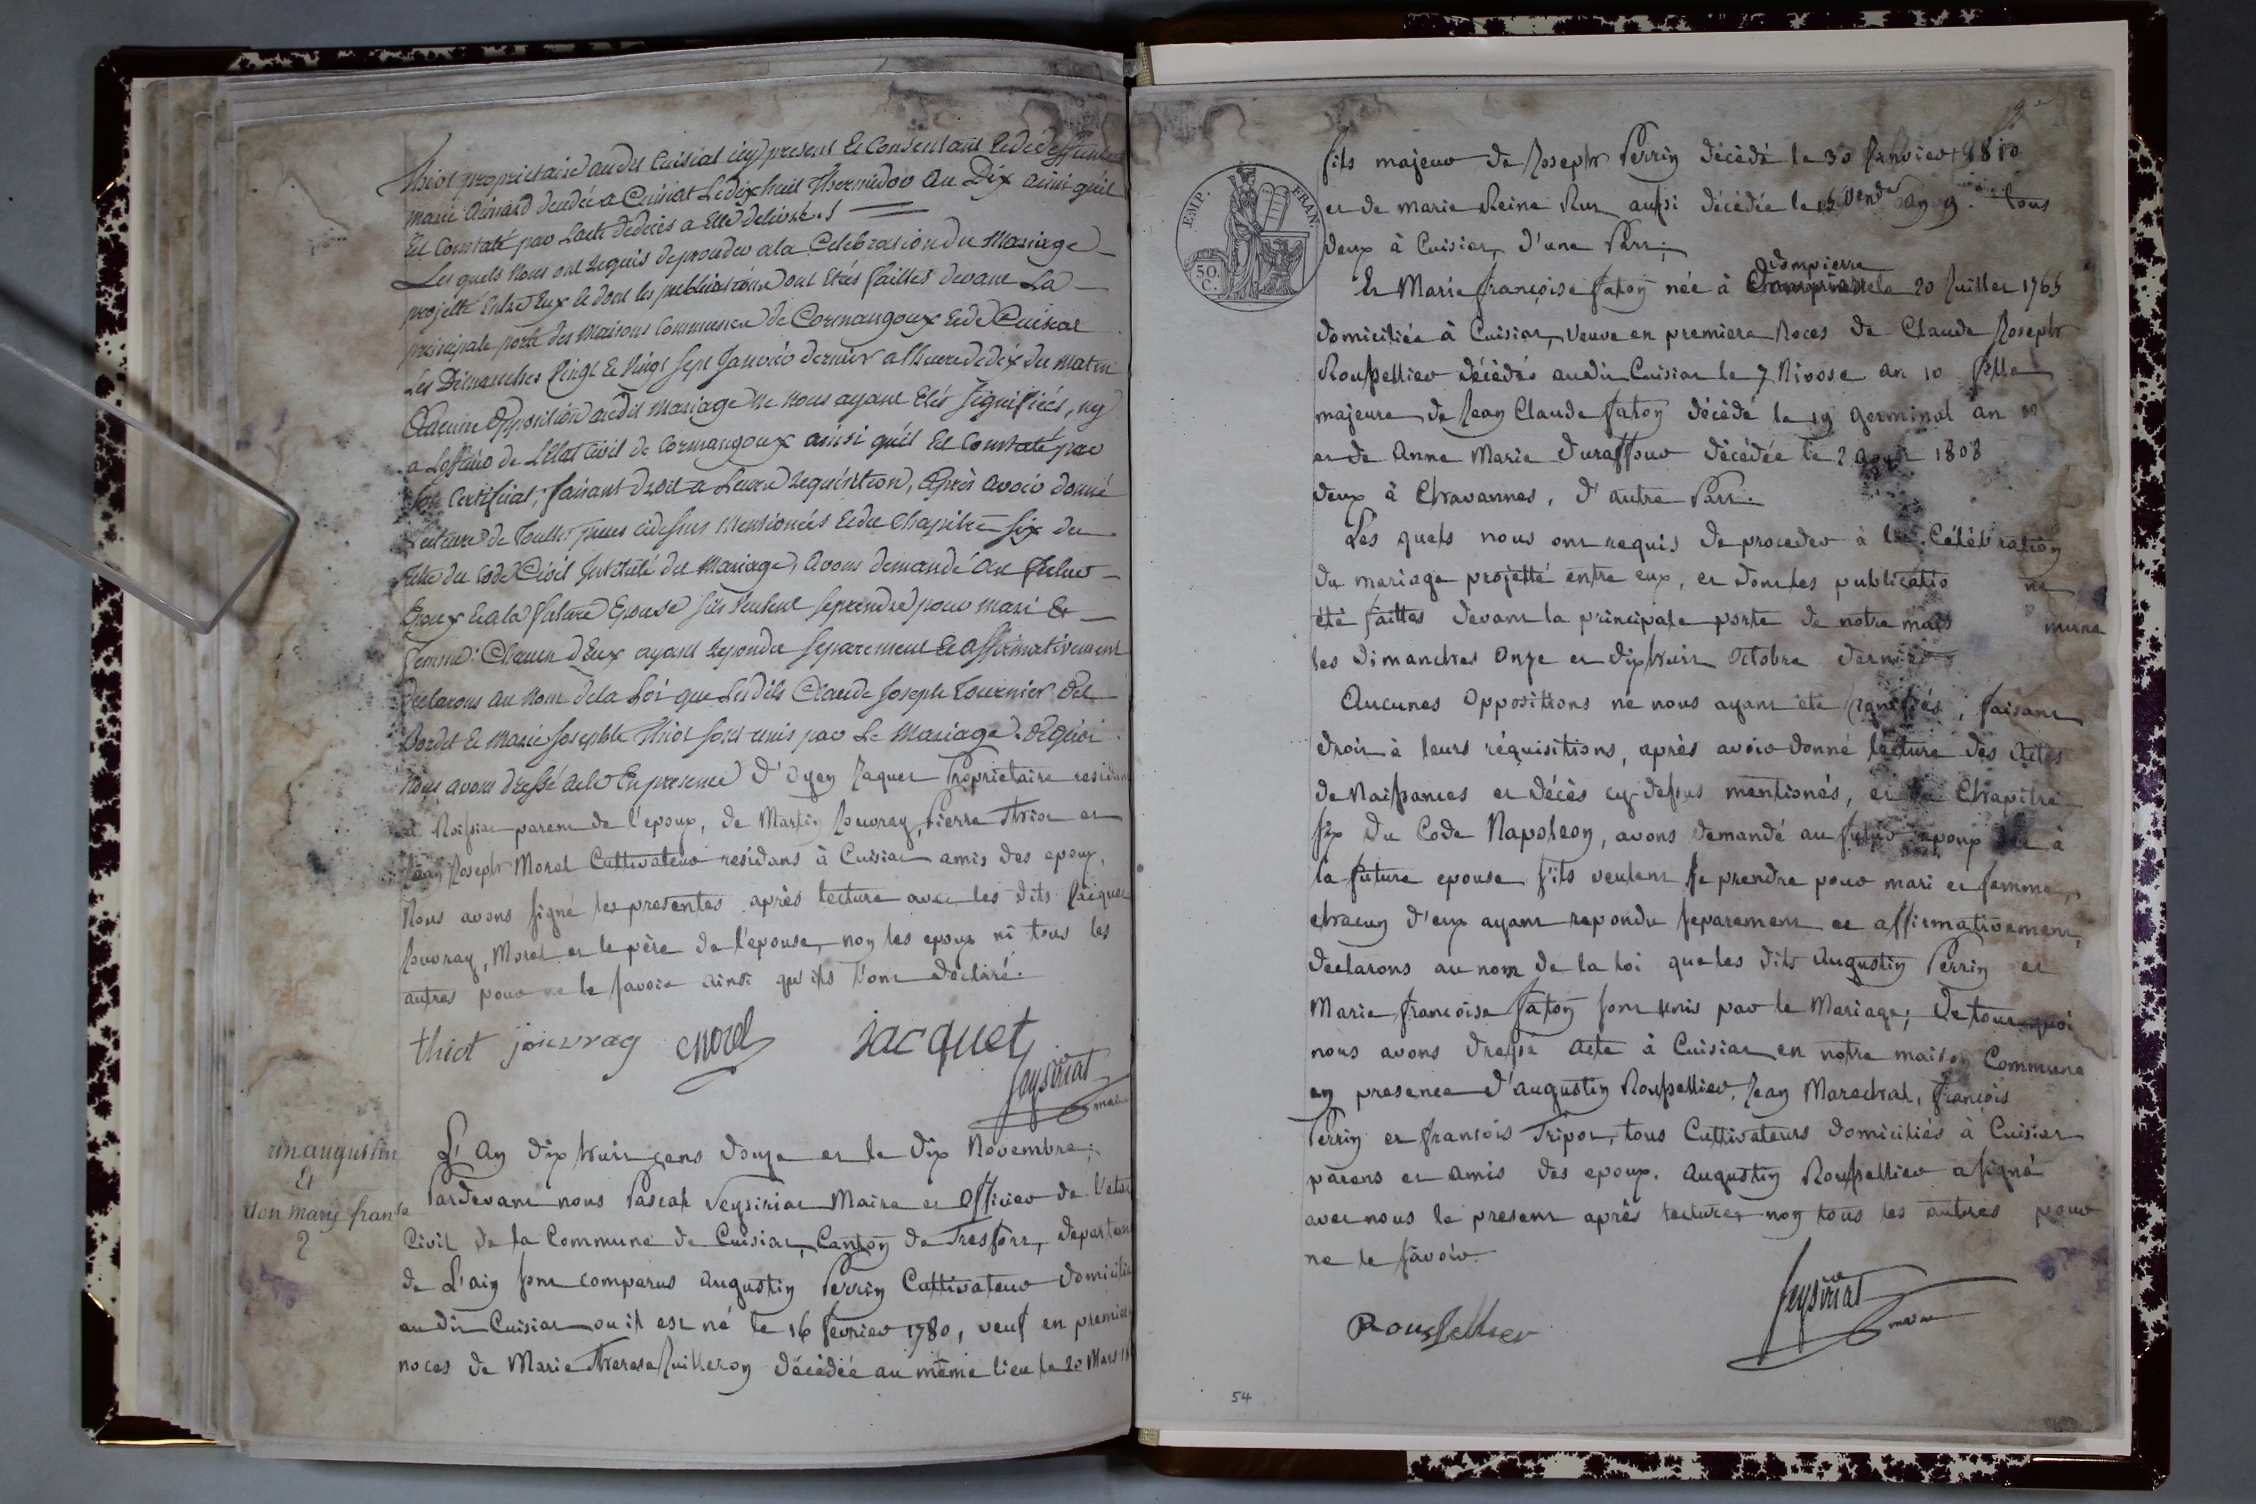 Thiot proprietaire audit Cuisiat icy present et Consentant et de deffunte
marie Armard decedée a Cuisiat Le dix huit Thermidor an Dix ainsi qu'il
Est Constaté par Lacte de deces a Elle delivré.
Les quels Nous ont requis de proceder a la Celebration du Mariage
projetté Entre Eux & dont les publications ont Etés faittes devant La
principale porte des Maisons Communes de Cormangoux et de Cuisiat
Les Dimanches Vingt & Vingt Sept Janvier dernier a l'heure de dix du Matin
Aucune Opposition audit Mariage ne nous ayant Etés Signifiées, ny
a Lofficier de L'Etat Civil de Cormangoux ainsi qu'il Est Constaté par
son Certificat; faisant droit a Leurs requisition, Après avoir donné
Lecture de Toutes pieces cidessus Mentionées et du Chapitre Six du
Titre du Code Civil Intitulé du Mariage, avons demandé au futur
Epoux et a la future Epouse s'ils veulent se prendre pour mari &
femme: Chacun d'Eux ayant repondu Separement & affirmativement
declarons au Nom de la Loi que Lesdits Claude Joseph Tournier dit
Bordet & Marie Josephte Thiot sont unis par Le Mariage. De quoi
Nous avons dressé acte En presence d'Oyen Jaquet Proprietaire residant
a Roissiat parent de l'epoux, de Martin Jouvray, Pierre Thiot et
Jean Joseph Morel Cultivateur residans à Cuisiat amis des epoux,
Nous avons signé les presentes après lecture avec les dits Jacquet
Jouvray, Morel et le père de l'epouse, non les epoux ni tous les
autres pour ne le savoir ainsi qu'ils l'ont déclaré.
thiot jouvray morel jacquet
Veysiriat
maire
rin augustin
Et
ton marie franse
2
L'An dix huit cens douze et le dix Novembre,
Pardevant nous Pascal Veysiriat Maire et Officier de l'etat
Civil de la Commune de Cuisiat, Canton de Tresfort, departem
de L'ain sont comparus Augustin Perrin Cultivateur domicilié
au dit Cuisiat ou il est né le 16 fevrier 1780, veuf en premiere
noces de Marie Therese Juilleron décédée au même lieu le 20 Mars 18
EMP. FRAN.
50.
C.
fils majeur de Joseph Perrin décédé le 30 Janvier 1810
et de marie Reine Rur aussi décédée le 15 Vend.re an 9. tous
deux à Cuisiat, d'une Part;
dompierre
Et Marie françoise faton née à le 20 Juillet 1765
domiciliée à Cuisiat, veuve en premiere Noces de Claude Joseph
Roussellier décédés audit Cuisiat le 7 Nivose an 10 fille
majeure de Jean Claude faton décédé le 19 germinal an
et de Anne Marie Duraffour décédée le 2 Aout 1808
deux à Chavannes, d'autre Part.
Les quels nous ont requis de proceder à la Célébration
du mariage projetté entre eux, et dont les publicatio nt
été faittes devant la principale porte de notre mais mune
les dimanches Onze et dix huit Octobre dernier
Aucunes Oppositions ne nous ayant été signifiés, faisant
droit à leurs réquisitions, après avoir donné lecture des Actes
de Naissances et décès cy-dessus mentionés, et du Chapitre
six du Code Napoleon, avons demandé au futur epoux et à
la future epouse s'ils veulent se prendre pour mari et femme,
chacun d'eux ayant repondu separement et affirmativement,
declarons au nom de la loi que les dits Augustin Perrin et
Marie françoise faton sont unis par le Mariage; De tout quoi
nous avons dressé acte à Cuisiat en notre maison Commune
en presence d'augustin Roussellier, Jean Marechal, françois
Perrin et francois Tripot, tous Cultivateurs domiciliés à Cuisiat
parens et amis des epoux. Augustin Roussellier a signé
avec nous le present après lecture, non tous les autres pour
ne le savoir.
Roussellier
Veysiriat
maire
54